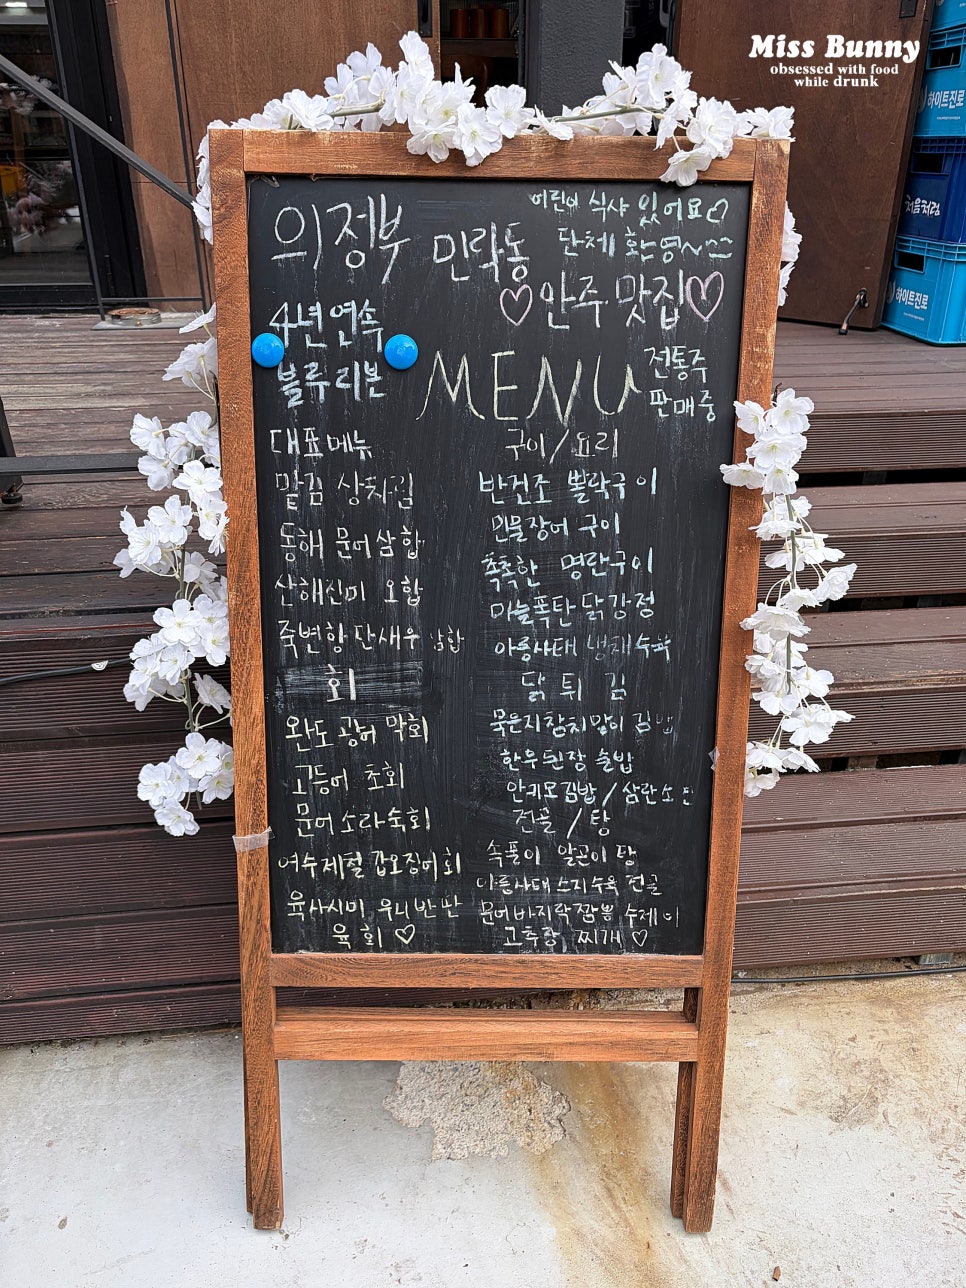 Miss Bunny
obsessed with food
while drunk
하이트진로
처음처럼
하이트진로
의정부 민락동
어린이 식사 있어요♡
단체 환영~
♡안주 맛집♡
4년 연속
블루리본
MENU
전통주
판매중
대표메뉴
맡김 상차림
동해 문어삼합
산해진미 오합
죽변항 단새우 삼합
회
완도 광어 막회
고등어 초회
문어 소라숙회
여수제철 갑오징어회
육사시미 우니반판
육회♡
구이/요리
반건조 뽈락구이
민물장어 구이
촉촉한 명란구이
마늘폭탄 닭강정
아롱사태 냉채수육
닭 튀김
묵은지참치말이 김밥
한우된장 술밥
안키모김밥/삼란소면
전골/탕
속풀이 알곤이 탕
아롱사태 스지수육 전골
문어바지락짬뽕 수제비
고추장 찌개♡